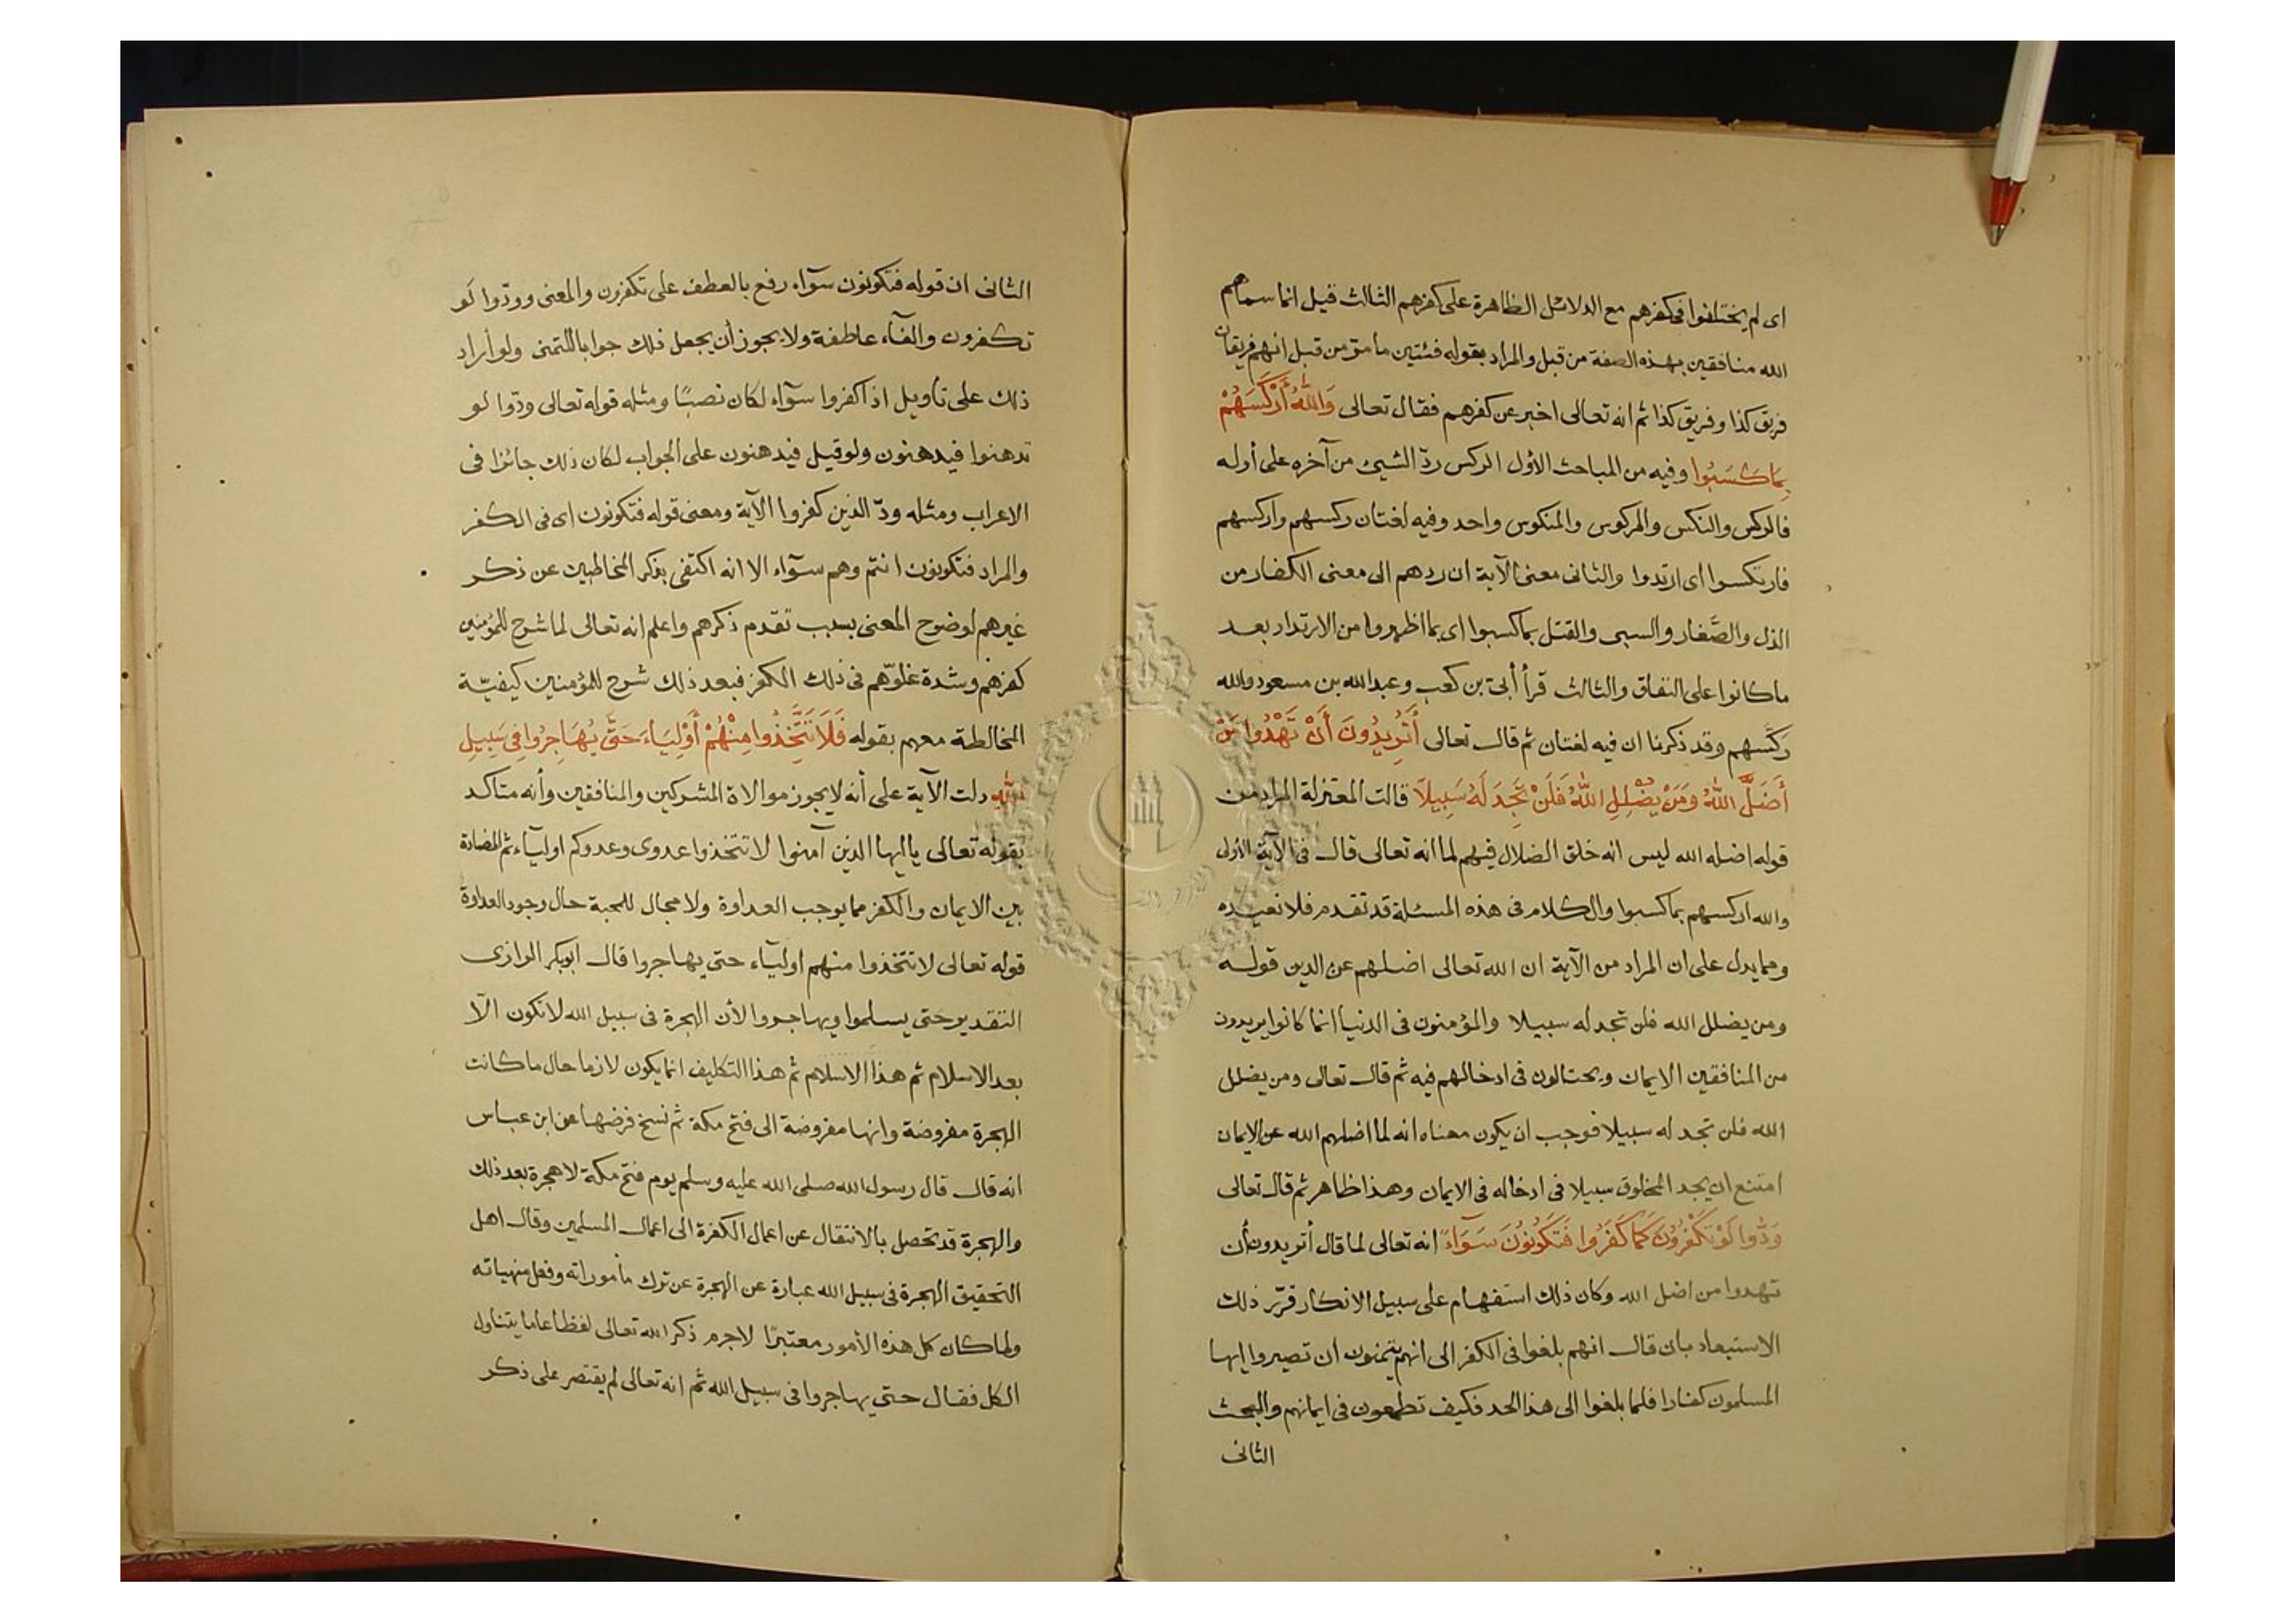 اى لم يختلفوا فى كفرهم مع الدلائل الظاهرة على كفرهم الثالث قيل انما سماهم
الله منافقين بهذه الصفة من قبل والمراد بقوله فئتين ما مرّ من قبل انهم فريقان
فريق كذا وفريق كذا ثم انه تعالى اخبر عن كفرهم فقال تعالى وَاللهُ أَرْكَسَهُمْ
بِمَا كَسَبُوا وفيه من المباحث الأول الركس ردّ الشيئ من آخره على أوله
فالركس والنكس والمركوس والمنكوس واحد وفيه لغتان ركسهم واركسهم
فارتكسوا اى ارتدوا والثانى معنى الآية ان ردهم الى معنى الكفار من
الذل والصَّغار والسبى والقتل بما كسبوا اى بما اظهروا من الارتداد بعد
ما كانوا على النفاق والثالث قرأ أبىّ بن كعب وعبد الله بن مسعود والله
ركسهم وقد ذكرنا ان فيه لغتان ثم قال تعالى أَتُرِيدُونَ أَنْ تَهْدُوا مَنْ
أَضَلَّ اللهُ وَمَنْ يُضْلِلِ اللهُ فَلَنْ تَجِدَ لَهُ سَبِيلًا قالت المعتزلة المراد من
قوله اضله الله ليس انه خلق الضلال فيهم لما انه تعالى قال فى الآية الأولى
والله اركسهم بما كسبوا والكلام فى هذه المسئلة قد تقدم فلا نعيده
ومما يدل على ان المراد من الآية ان الله تعالى اضلهم عن الدين قوله
ومن يضلل الله فلن تجد له سبيلا والمؤمنون فى الدنيا انما كانوا يريدون
من المنافقين الايمان ويحتالون فى ادخالهم فيه ثم قال تعالى ومن يضلل
الله فلن تجد له سبيلا فوجب ان يكون معناه انه لما اضلهم الله عن الايمان
امتنع ان يجد المخلوق سبيلا فى ادخاله فى الايمان وهذا ظاهر ثم قال تعالى
وَدُّوا لَوْ تَكْفُرُونَ كَمَا كَفَرُوا فَتَكُونُونَ سَوَآءً انه تعالى لما قال أتريدون أن
تهدوا من اضل الله وكان ذلك استفهام على سبيل الانكار قرّر ذلك
الاستبعاد بان قال انهم بلغوا فى الكفر الى انهم يتمنون ان تصيروا ايها
المسلمون كفارا فلما بلغوا الى هذا الحد فكيف تطمعون فى ايمانهم والبحث
الثانى
الثانى ان قوله فتكونون سوآء رفع بالعطف على تكفرون والمعنى وودّوا لو
تكفرون والفآء عاطفة ولا يجوز أن يجعل ذلك جوابا للتمنى ولو أراد
ذلك على تأويل اذا كفروا سوآء لكان نصبًا ومثله قوله تعالى ودّوا لو
تدهنوا فيدهنون ولو قيل فيدهنون على الجواب لكان ذلك جائزا فى
الاعراب ومثله ودّ الذين كفروا الآية ومعنى قوله فتكونون اى فى الكفر
والمراد فتكونون انتم وهم سوآء الا انه اكتفى بذكر المخاطبين عن ذكر
غيرهم لوضوح المعنى بسبب تقدم ذكرهم واعلم انه تعالى لما شرح للمؤمنين
كفرهم وشدة غلوّهم فى ذلك الكفر فبعد ذلك شرح للمؤمنين كيفيّة
المخالطة معهم بقوله فَلَا تَتَّخِذُوا مِنْهُمْ أَوْلِيَاءَ حَتَّى يُهَاجِرُوا فِى سَبِيلِ
اللهِ دلت الآية على أنه لا يجوز موالاة المشركين والمنافقين وأنه متاكد
بقوله تعالى يا ايها الذين آمنوا لا تتخذوا عدوى وعدوكم اوليآء ثم المضادة
بين الايمان والكفر مما يوجب العداوة ولا مجال للمحبة حال وجود العداوة
قوله تعالى لا تتخذوا منهم اوليآء حتى يهاجروا قال ابوبكر الرازى
التقدير حتى يسلموا ويهاجروا لأن الهجرة فى سبيل الله لا تكون الّا
بعد الاسلام ثم هذا الاسلام ثم هذا التكليف انما يكون لازما حال ما كانت
الهجرة مفروضة وانها مفروضة الى فتح مكة ثم نسخ فرضها عن ابن عباس
انه قال قال رسول الله صلى الله عليه وسلم يوم فتح مكة لا هجرة بعد ذلك
والهجرة قد تحصل بالانتقال عن اعمال الكفرة الى اعمال المسلمين وقال اهل
التحقيق الهجرة فى سبيل الله عبارة عن الهجرة عن ترك مأموراته وفعل منهياته
ولما كان كل هذه الأمور معتبرًا لاجرم ذكر الله تعالى لفظا عاما يتناول
الكل فقال حتى يهاجروا فى سبيل الله ثم انه تعالى لم يقتصر على ذكر